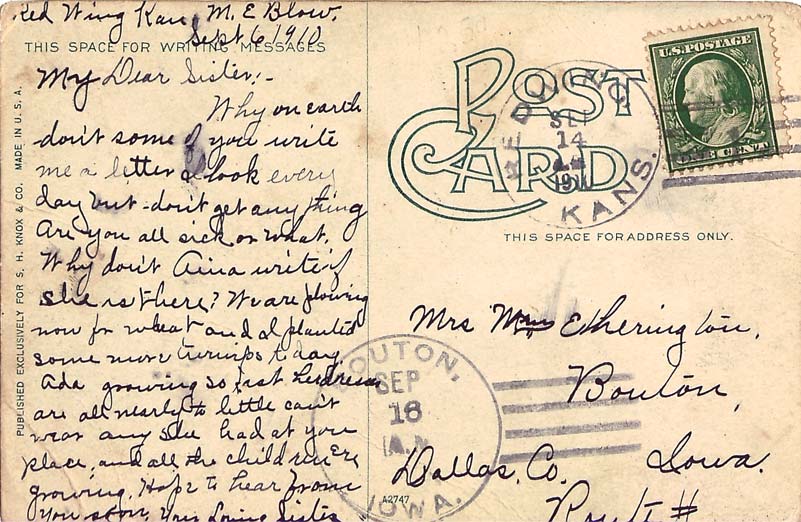 Red Wing Kan, M. E Blow.
Sept 6 1910
THIS SPACE FOR WRITING MESSAGES
My Dear Sister:-
Why on earth
don't some of you write
me a letter I look every
day but don't get any thing
Are you all sick or what.
Why don't Aina write if
she is there? We are plowing
now for wheat and I planted
some more turnips today.
Ada growing so fast her dresses
are all nearly to little can't
wear any she had at your
place, and all the children are
growing. Hope to hear from
you soon, Your Loving Sister
PUBLISHED EXCLUSIVELY FOR S. H. KNOX & CO. MADE IN U. S. A.
POST
CARD
RED WING
SEP
14
1910
KANS.
U.S. POSTAGE
ONE CENT
THIS SPACE FOR ADDRESS ONLY.
Mrs Wm Etherington,
Bouton,
Dallas, Co. Iowa.
Rout #
BOUTON,
SEP
16
A.M.
IOWA.
A2747